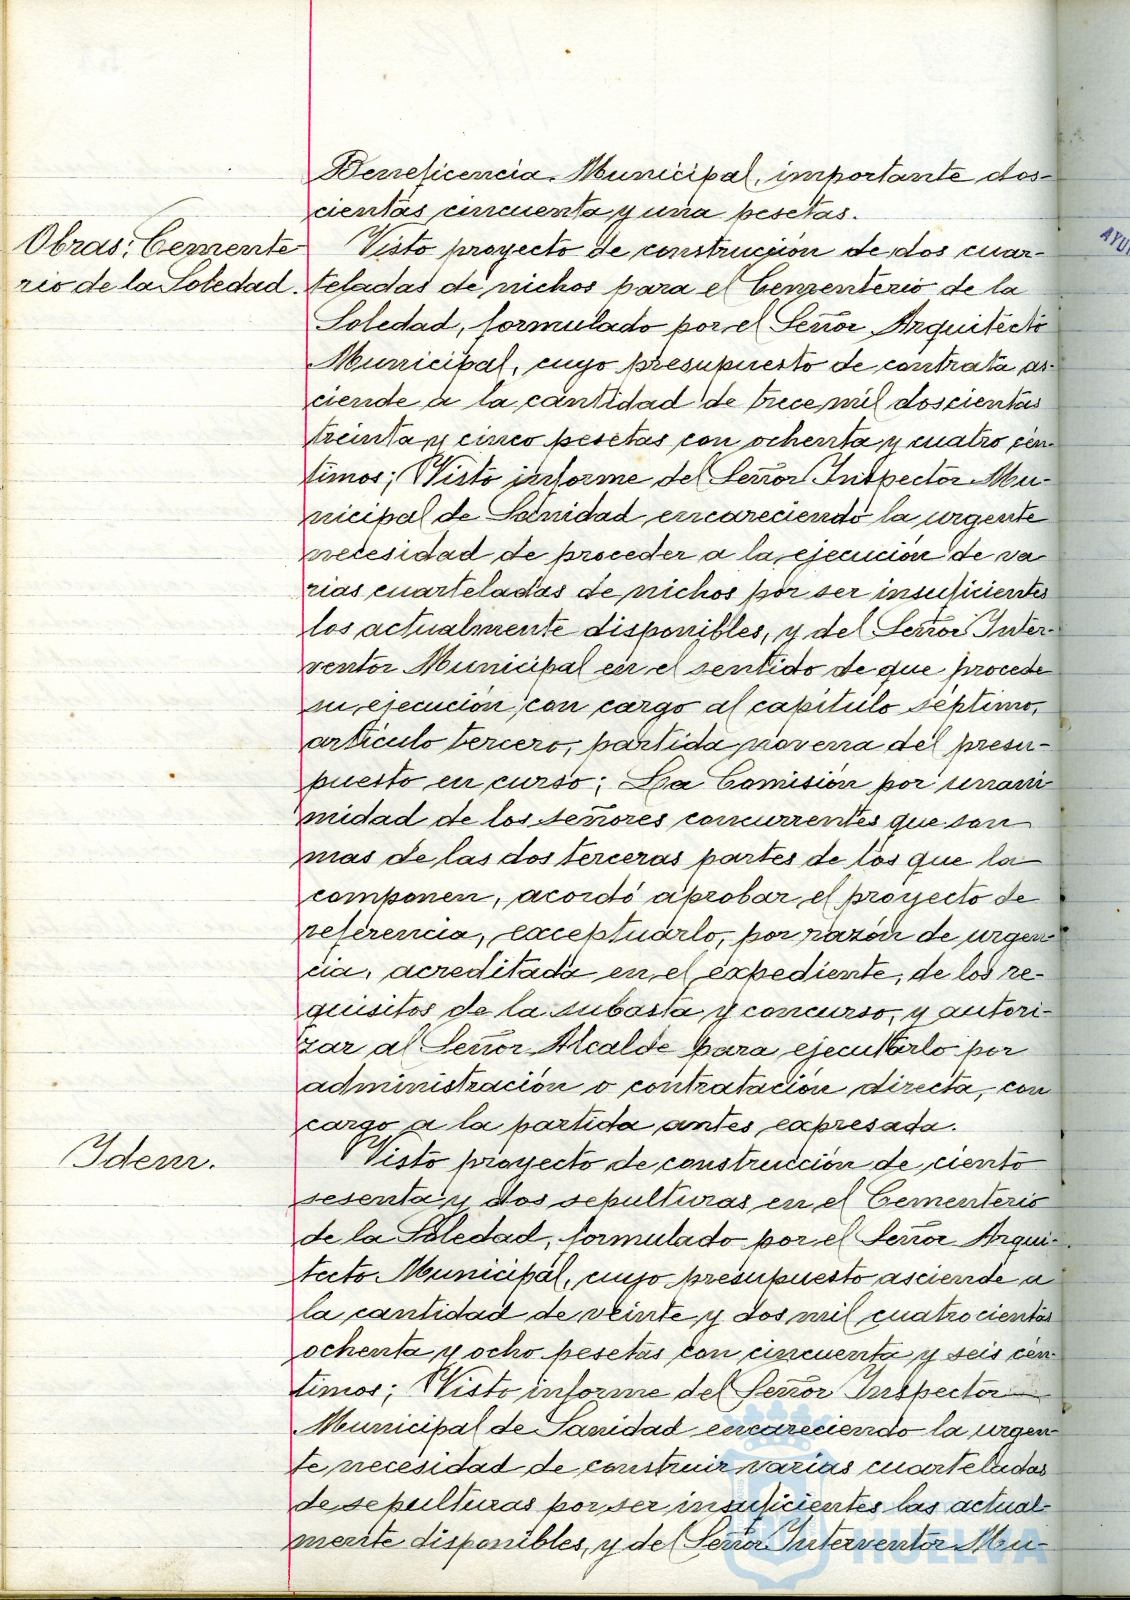 Beneficencia Municipal, importante dos-
cientas cincuenta y una pesetas.
Obras: Cemente
rio de la Soledad.
Visto proyecto de construcción de dos cuar-
teladas de nichos para el Cementerio de la
Soledad, formulado por el Señor Arquitecto
Municipal, cuyo presupuesto de contrata as-
ciende a la cantidad de trece mil doscientas
treinta y cinco pesetas con ochenta y cuatro cén-
timos; Visto informe del Señor Inspector Mu-
nicipal de Sanidad encareciendo la urgente
necesidad de proceder a la ejecución de va
rias cuarteladas de nichos por ser insuficientes
los actualmente disponibles, y del Señor Inter-
ventor Municipal en el sentido de que procede
su ejecución con cargo al capítulo séptimo,
artículo tercero, partida novena del presu-
puesto en curso; La Comisión por unani
midad de los señores concurrentes que son
mas de las dos terceras partes de los que la
componen, acordó aprobar el proyecto de
referencia, exceptuarlo, por razón de urgen-
cia, acreditada en el expediente, de los re-
quisitos de la subasta y concurso, y autori-
zar al Señor Alcalde para ejecutarlo por
administración o contratación directa, con
cargo a la partida antes expresada.
Idem.
Visto proyecto de construcción de ciento
sesenta y dos sepulturas en el Cementerio
de la Soledad, formulado por el Señor Arqui-
tecto Municipal, cuyo presupuesto asciende a
la cantidad de veinte y dos mil cuatrocientas
ochenta y ocho pesetas con cincuenta y seis cén-
timos; Visto informe del Señor Inspector
Municipal de Sanidad encareciendo la urgen-
te necesidad de construir varias cuarteladas
de sepulturas por ser insuficientes las actual-
mente disponibles, y del Señor Interventor Mu-
HUELVA